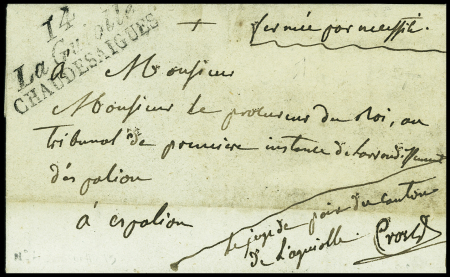 14
La Guiolle
CHAUDESAIGUES
+ fermée par nécessité.
à Monsieur
Monsieur le procureur du Roi, au
tribunal de première instance de larrondissement
déspalion
à espalion
le juge de paix du canton
de Laguiolle.